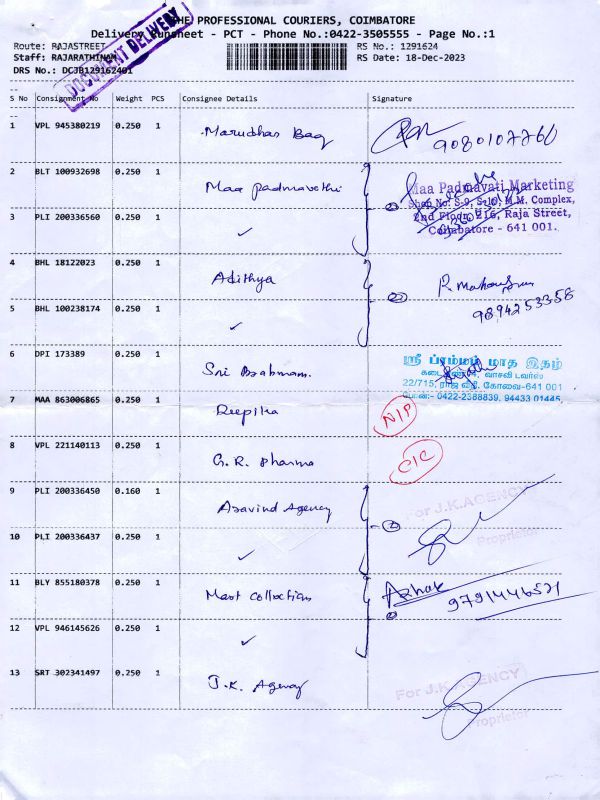 THE PROFESSIONAL COURIERS, COIMBATORE
Delivery Runsheet - PCT - Phone No.:0422-3505555 - Page No.:1
Route: RAJASTREET RS No.: 1291624
Staff: RAJARATHINAM RS Date: 18-Dec-2023
DRS No.: DCJB129162401
DOCUMENT DELIVERY
S No Consignment No Weight PCS Consignee Details Signature
1 VPL 945380219 0.250 1 Marudhar Bag 9080107760
2 BLT 100932698 0.250 1 Maa Padmavathi
Maa Padmavati Marketing
Shop No: S-9, S-10, M.M. Complex,
2nd Floor, 216, Raja Street,
Coimbatore - 641 001.
3 PLI 200336560 0.250 1 ✓ 2
4 BHL 18122023 0.250 1 Adithya 2
9894253358
5 BHL 100238174 0.250 1 ✓
6 DPI 173389 0.250 1 Sri Brahmam.
ஸ்ரீ ப்ரம்மம் மாத இதழ்
வாசவி டவர்ஸ்
22/715, ராஜ வீதி, கோவை-641 001
போன்:- 0422-2388839, 94433 01445
7 MAA 863006865 0.250 1 Deepika N/P
8 VPL 221140113 0.250 1 G.R. Pharma C/C
9 PLI 200336450 0.160 1 Aravind Agency 2
For J.K.AGENCY
Proprietor
10 PLI 200336437 0.250 1 ✓
11 BLY 855180378 0.250 1 Mast Collection Ashok 9791446521
12 VPL 946145626 0.250 1 ✓
13 SRT 302341497 0.250 1 J.K. Agency
For J.K.AGENCY
Proprietor